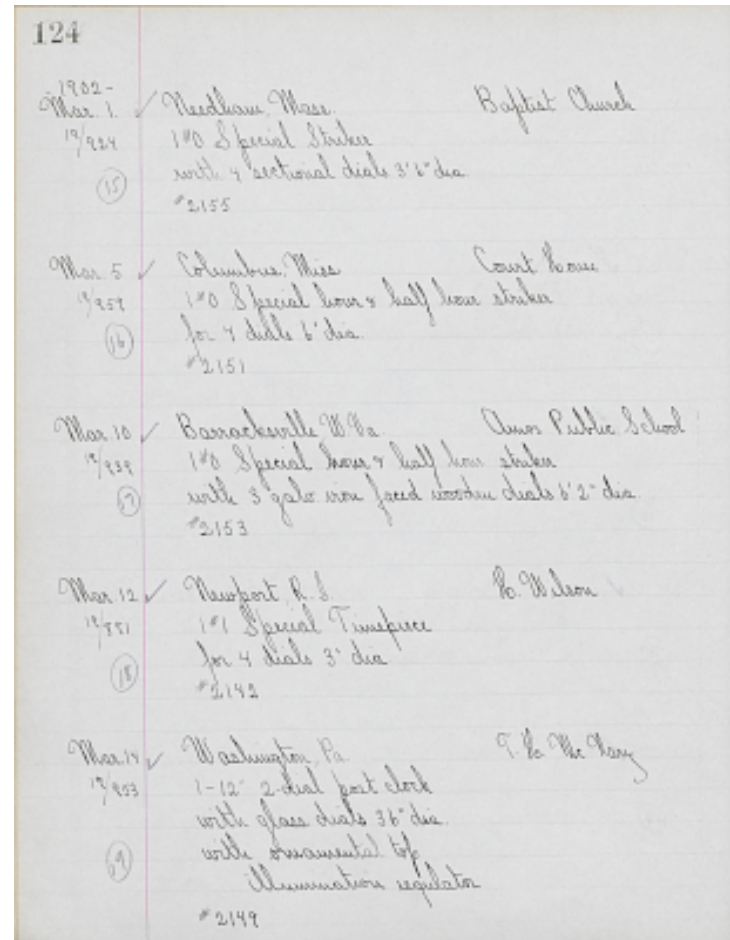 124
1902-
Mar. 1. ✓ Needham, Mass. Baptist Church
19/924 1 #0 Special Striker
with 4 sectional dials 3'6" dia.
(15)
#2155
Mar. 5 ✓ Columbus, Miss Court House
19/959 1 #0 Special hour & half hour striker
for 4 dials 6' dia.
(16)
#2151
Mar. 10 ✓ Barracksville, W. Va. Amos Public School
19/939 1 #0 Special hour & half hour striker
with 3 galv. iron faced wooden dials 6'2" dia.
(17)
#2153
Mar. 12 ✓ Newport, R. I. H. Wilson
19/881 1 #1 Special Timepiece
for 4 dials 3' dia
(18)
#2142
Mar. 14 ✓ Washington, Pa. T. H. Mc Nary
19/953 1-12" 2-dial post clock
with glass dials 36" dia.
with ornamental top
(19)
illumination regulator
#2149